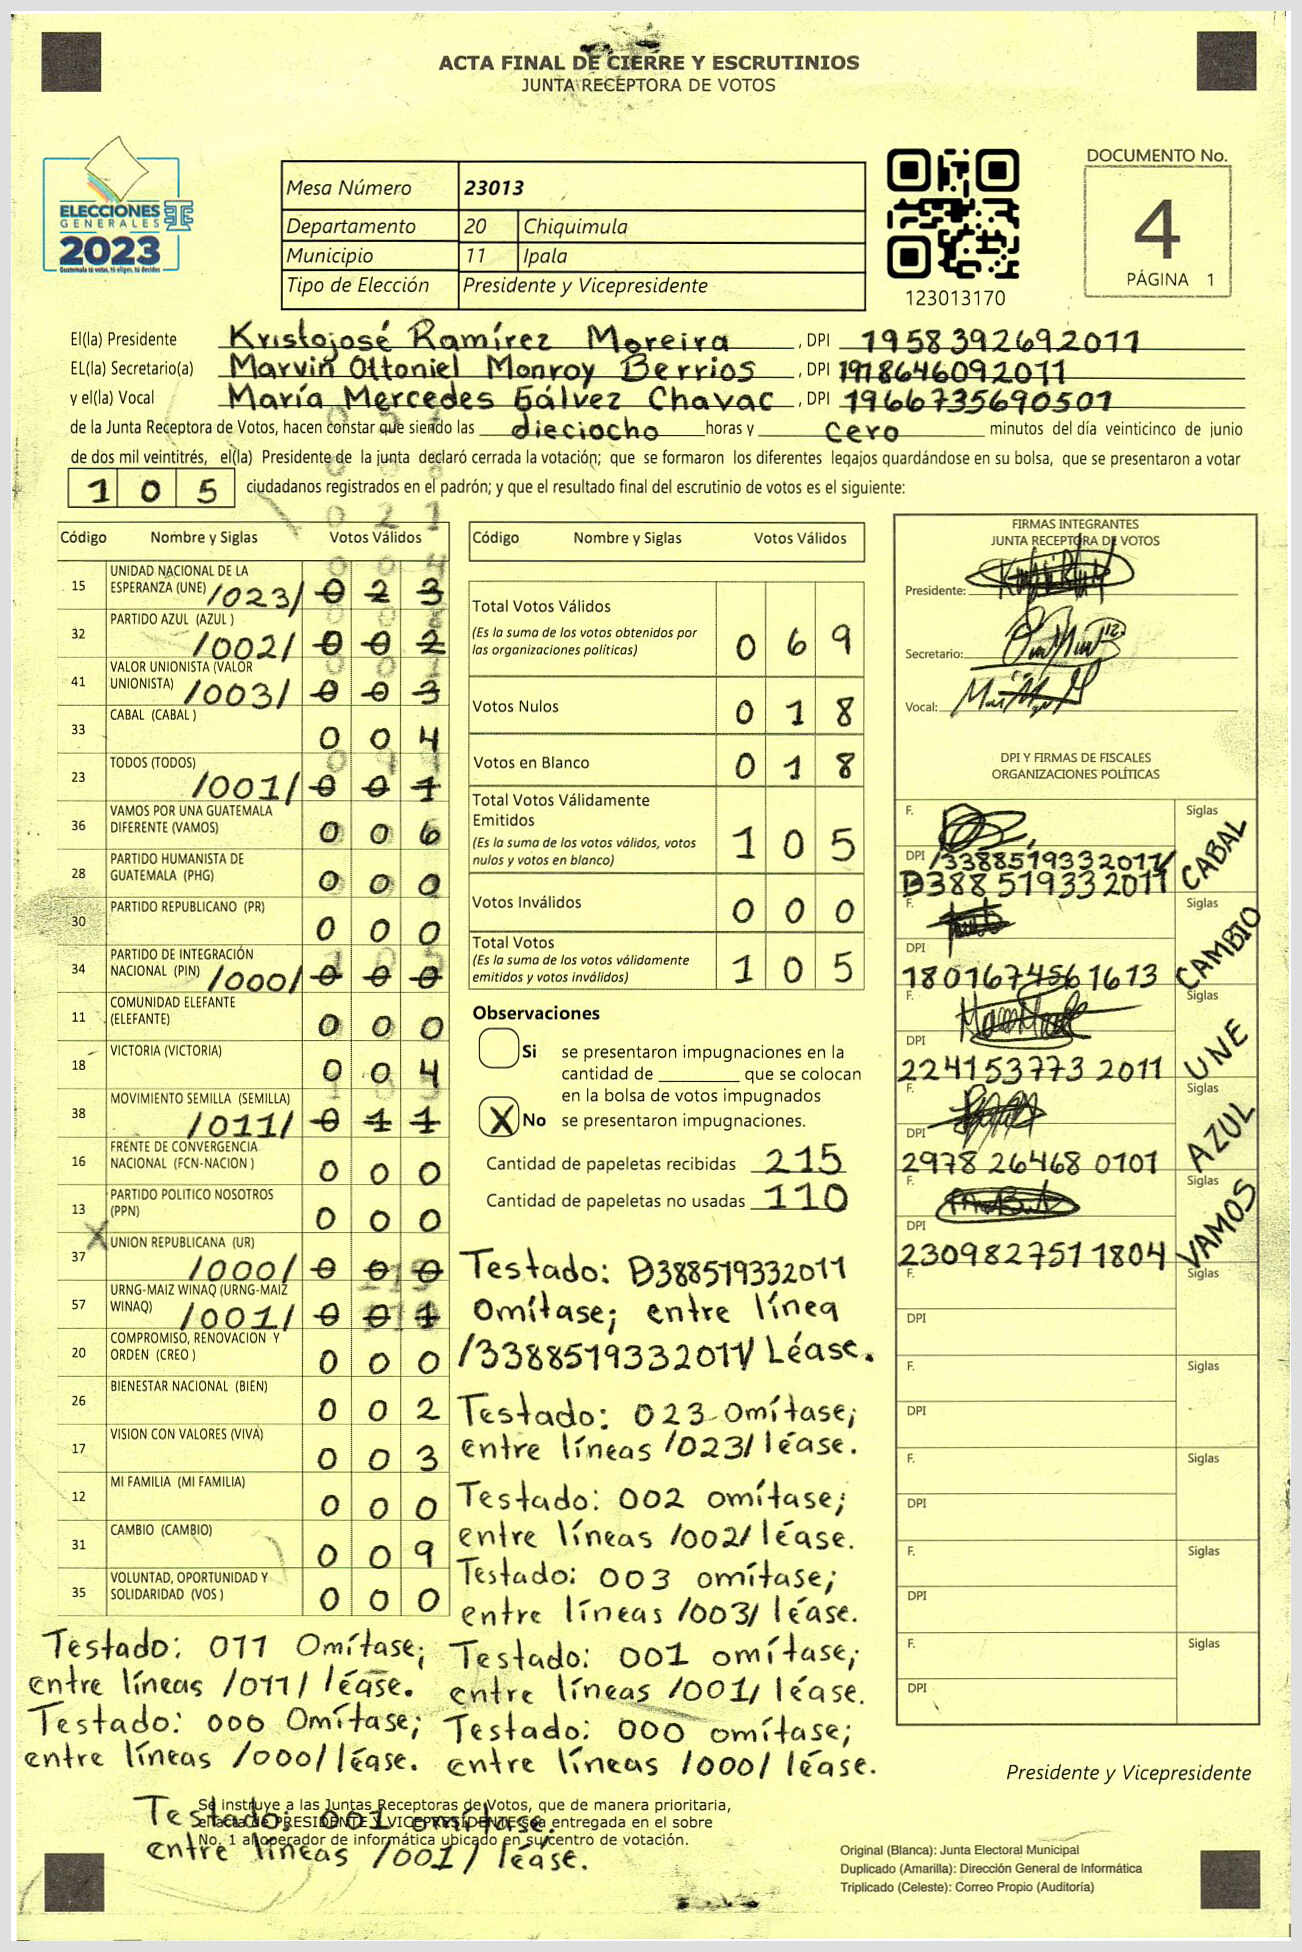 ACTA FINAL DE CIERRE Y ESCRUTINIOS
JUNTA RECEPTORA DE VOTOS
ELECCIONES
GENERALES
2023
Guatemala tú votas, tú eliges, tú decides
Mesa Número 23013
Departamento 20 Chiquimula
Municipio 11 Ipala
Tipo de Elección Presidente y Vicepresidente
123013170
DOCUMENTO No.
4
PÁGINA 1
El(la) Presidente Kristojosé Ramírez Moreira, DPI 1958392692011
EL(la) Secretario(a) Marvin Ottoniel Monroy Berrios, DPI 1978646092011
y el(la) Vocal María Mercedes Gálvez Chavac, DPI 1966735690501
de la Junta Receptora de Votos, hacen constar que siendo las dieciocho horas y cero minutos del día veinticinco de junio
de dos mil veintitrés, el(la) Presidente de la junta declaró cerrada la votación; que se formaron los diferentes legajos guardándose en su bolsa, que se presentaron a votar
1 0 5 ciudadanos registrados en el padrón; y que el resultado final del escrutinio de votos es el siguiente:
Código Nombre y Siglas Votos Válidos
15 UNIDAD NACIONAL DE LA
ESPERANZA (UNE) /023/ 0 2 3
32 PARTIDO AZUL (AZUL ) /002/ 0 0 2
41 VALOR UNIONISTA (VALOR
UNIONISTA) /003/ 0 0 3
33 CABAL (CABAL ) 0 0 4
23 TODOS (TODOS) /001/ 0 0 1
36 VAMOS POR UNA GUATEMALA
DIFERENTE (VAMOS) 0 0 6
28 PARTIDO HUMANISTA DE
GUATEMALA (PHG) 0 0 0
30 PARTIDO REPUBLICANO (PR) 0 0 0
34 PARTIDO DE INTEGRACIÓN
NACIONAL (PIN) /000/ 0 0 0
11 COMUNIDAD ELEFANTE
(ELEFANTE) 0 0 0
18 VICTORIA (VICTORIA) 0 0 4
38 MOVIMIENTO SEMILLA (SEMILLA) /011/ 0 1 1
16 FRENTE DE CONVERGENCIA
NACIONAL (FCN-NACION ) 0 0 0
13 PARTIDO POLITICO NOSOTROS
(PPN) 0 0 0
37 UNION REPUBLICANA (UR) /000/ 0 0 0
57 URNG-MAIZ WINAQ (URNG-MAIZ
WINAQ) /001/ 0 0 1
20 COMPROMISO, RENOVACION Y
ORDEN (CREO ) 0 0 0
26 BIENESTAR NACIONAL (BIEN) 0 0 2
17 VISION CON VALORES (VIVA) 0 0 3
12 MI FAMILIA (MI FAMILIA) 0 0 0
31 CAMBIO (CAMBIO) 0 0 9
35 VOLUNTAD, OPORTUNIDAD Y
SOLIDARIDAD (VOS ) 0 0 0
Código Nombre y Siglas Votos Válidos
Total Votos Válidos
(Es la suma de los votos obtenidos por
las organizaciones políticas) 0 6 9
Votos Nulos 0 1 8
Votos en Blanco 0 1 8
Total Votos Válidamente
Emitidos
(Es la suma de los votos válidos, votos
nulos y votos en blanco) 1 0 5
Votos Inválidos 0 0 0
Total Votos
(Es la suma de los votos válidamente
emitidos y votos inválidos) 1 0 5
Observaciones
Si se presentaron impugnaciones en la
cantidad de ________ que se colocan
en la bolsa de votos impugnados
X No se presentaron impugnaciones.
Cantidad de papeletas recibidas 215
Cantidad de papeletas no usadas 110
Testado: D388519332011
Omítase; entre línea
/3388519332011/ Léase.
Testado: 023 Omítase;
entre líneas /023/ léase.
Testado: 002 omítase;
entre líneas /002/ léase.
Testado: 003 omítase;
entre líneas /003/ léase.
Testado: 001 omítase;
entre líneas /001/ léase.
Testado: 000 omítase;
entre líneas /000/ léase.
Testado: 011 Omítase;
entre líneas /011/ léase.
Testado: 000 Omítase;
entre líneas /000/ léase.
Testado: 001 omítase.
entre líneas /001/ léase.
FIRMAS INTEGRANTES
JUNTA RECEPTORA DE VOTOS
Presidente:
Secretario:
Vocal:
DPI Y FIRMAS DE FISCALES
ORGANIZACIONES POLÍTICAS
F. Siglas CABAL
DPI /3388519332011/
D388 519332011
F. Siglas CAMBIO
DPI
1801674561613
F. Siglas UNE
DPI
2241537732011
F. Siglas AZUL
DPI
2978 26468 0101
F. Siglas VAMOS
DPI
2309827511804
F. Siglas
DPI
F. Siglas
DPI
F. Siglas
DPI
F. Siglas
DPI
F. Siglas
DPI
Presidente y Vicepresidente
Se instruye a las Juntas Receptoras de Votos, que de manera prioritaria,
el acta de PRESIDENTE Y VICEPRESIDENTE sea entregada en el sobre
No. 1 al operador de informática ubicado en su centro de votación.
Original (Blanca): Junta Electoral Municipal
Duplicado (Amarilla): Dirección General de Informática
Triplicado (Celeste): Correo Propio (Auditoría)